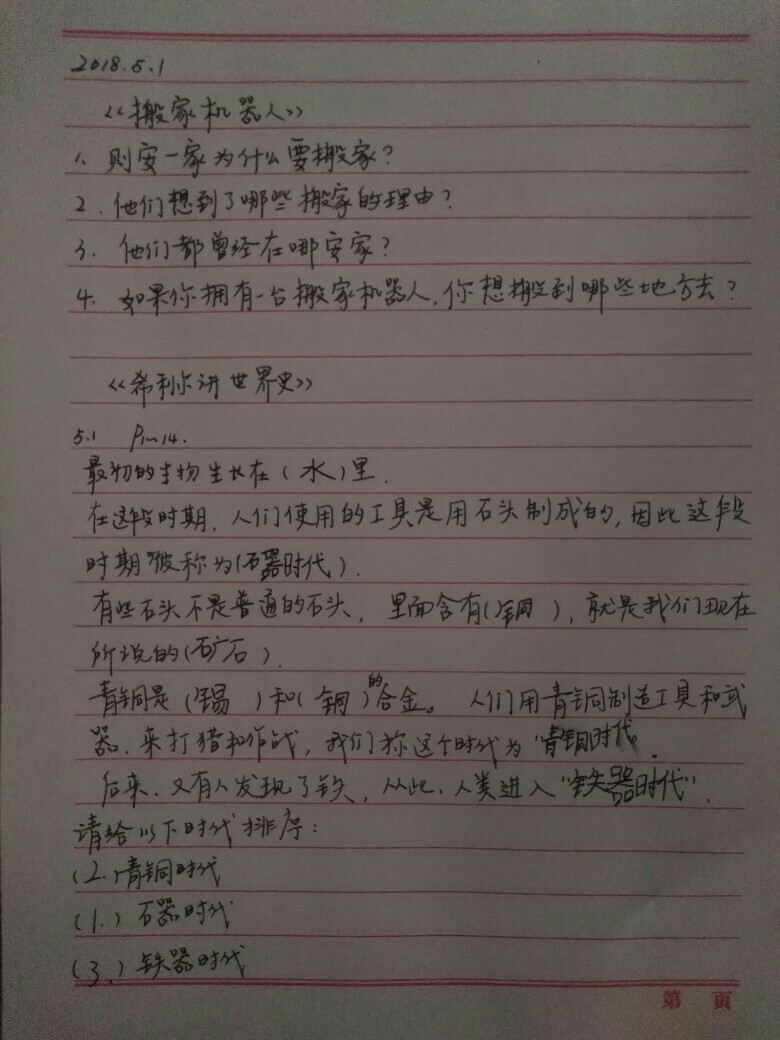 2018.5.1
《搬家机器人》
1、则安一家为什么要搬家？
2．他们想到了哪些搬家的理由？
3．他们都曾经在哪安家？
4．如果你拥有一台搬家机器人，你想搬到哪些地方去？
《希利尔讲世界史》
5.1 P1~14.
最初的生物生长在（水）里．
在这段时期，人们使用的工具是用石头制成的，因此这段
时期被称为（石器时代）．
有些石头不是普通的石头，里面含有（铜），就是我们现在
所说的（矿石）．
青铜是（锡）和（铜）的合金。人们用青铜制造工具和武
器，来打猎和作战，我们称这个时代为“青铜时代．
后来，又有人发现了铁，从此，人类进入“铁器时代”．
请给以下时代排序：
（2.）青铜时代
（1.）石器时代
（3.）铁器时代
第 页